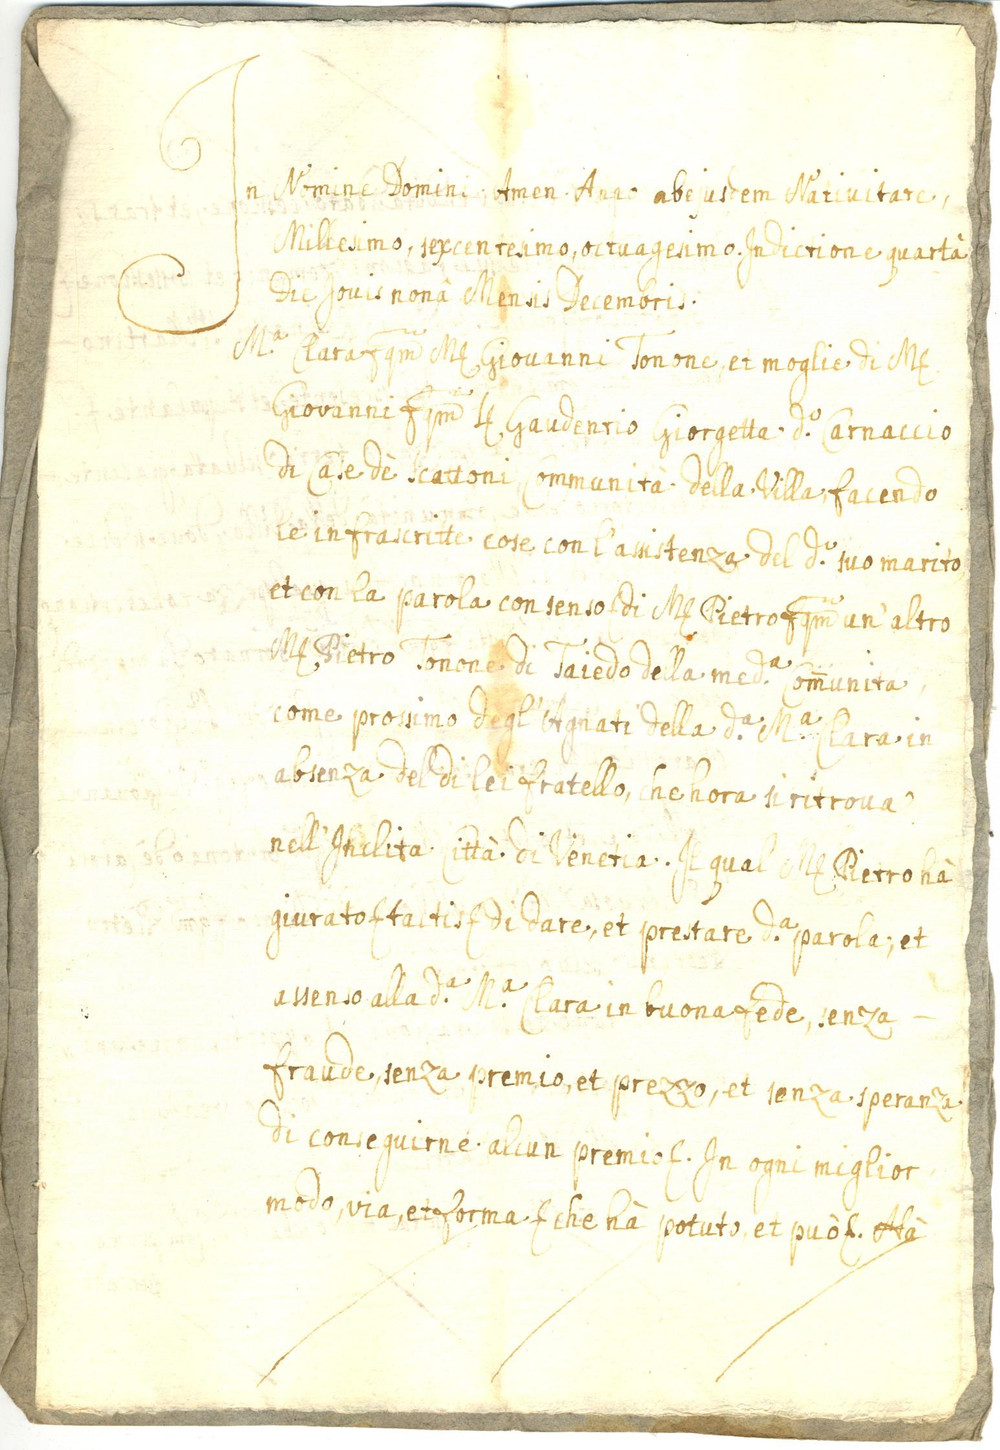 In Nomine Domini Amen. Anno ab ejusdem Nativitate,
Millesimo, sexcentesimo, octuagesimo. Indictione quartà
Die Jovis nonà Mensis Decembris.
M.a Clara qm M. Giovanni Tonone, et moglie di M.
Giovanni qm Gaudentio Giorgetta d.o Carnaccio
di Case dè Scattoni Communità della Villa, facendo
le infrascritte cose con l'assistenza del d.o suo marito,
et con la parola consenso di M. Pietro qm un'altro
M. Pietro Tonone di Taiedo della med.a Comunità,
come prossimo degl'Agnati della d.a M.a Clara in
absenza del di lei fratello, che hora si ritroua
nell'Inclita Città di Venetia. Il qual M. Pietro hà
giurato tactis di dare, et prestare d.a parola, et
assenso alla d.a M.a Clara in buona fede, senza
fraude, senza premio, et prezzo, et senza speranza
di conseguirne alcun premio. In ogni miglior
modo, via, et forma che hà potuto, et può. Hà